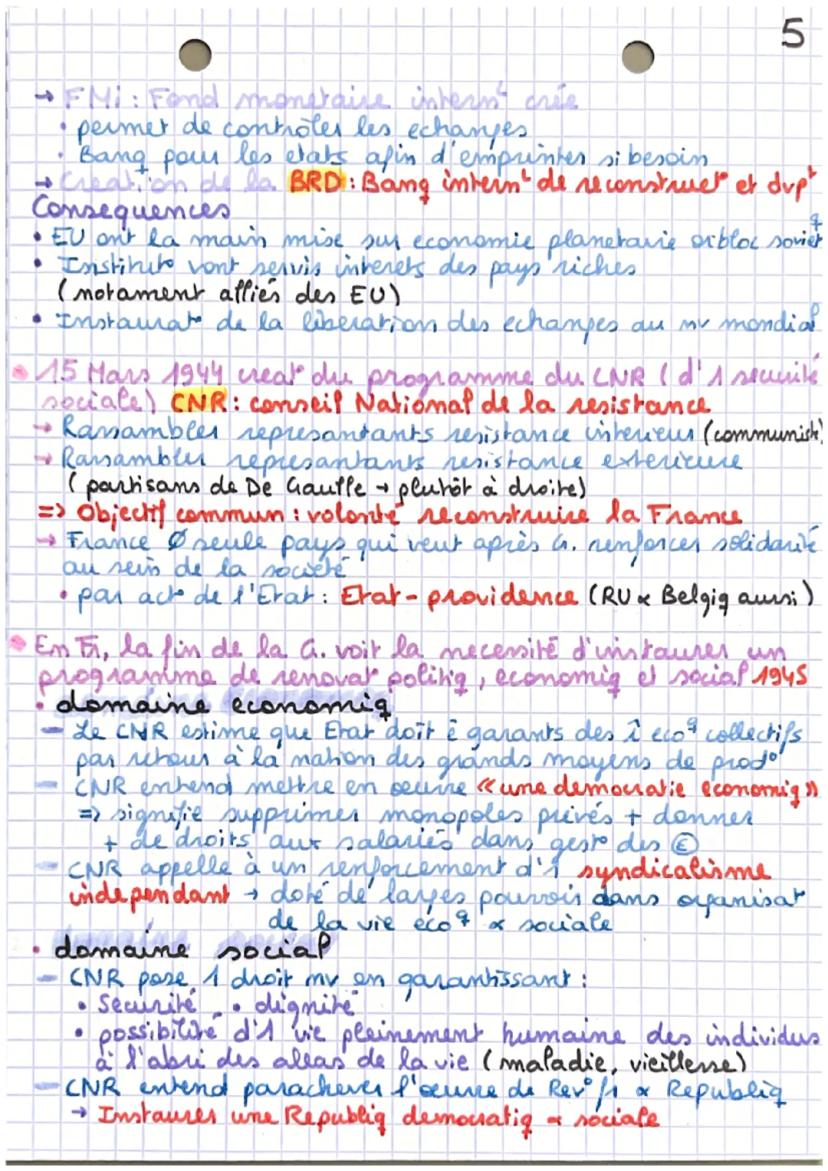 5
→ FMi : Fond monetaire internᵗ crée
• permet de contrôler les echanges
• Banq pour les etats afin d'emprunter si besoin
→ Creation de la BRD : Banq internᵗ de reconstructᵒ et dvpᵗ
Consequences
• EU ont la main mise sur economie planetaire or bloc soviet^q
• Institutᵒ vont servir interets des pays riches
(notament alliés des EU)
• Instauratᵒ de la liberation des echanges au nv mondial
• 15 Mars 1944 creatᵒ du programme du CNR ( d'1 securité
sociale) CNR : conseil National de la resistance
→ Rassembler represantants resistance interieur (communiste)
→ Rassembler represantants resistance exterieure
( partisans de De Gaulle → plutôt à droite)
=> Objectif commun : volonté reconstruire la France
→ France Ø seule pays qui veut après G. renforcer solidarité
au sein de la société
• par actᵒ de l'Etat : Etat-providence (RU & Belgiq aussi)
• En Fr, la fin de la G. voit la necessité d'instaurer un
programme de renovatᵒ politiq, economiq et social 1945
• domaine economiq
- Le CNR estime que Etat doit ê garants des î eco^q collectifs
par retour à la nation des grands moyens de prodᵒ
- CNR entend mettre en oeuvre « une democratie economiq »
=> signifie supprimer monopoles privés + donner
+ de droits aux salariés dans gestᵒ des Ⓔ
- CNR appelle à un renforcement d'1 syndicalisme
independant → doté de larges pouvoirs dans organisatᵒ
de la vie eco^q & sociale
• domaine social
- CNR pose 1 droit nv en garantissant :
• Securité • dignité
• possibilité d'1 vie pleinement humaine des individus
à l'abri des aleas de la vie (maladie, vieillesse)
- CNR entend parachever l'œuvre de Revᵒ f1 & Republiq
→ Instaurer une Republiq democratiq & sociale